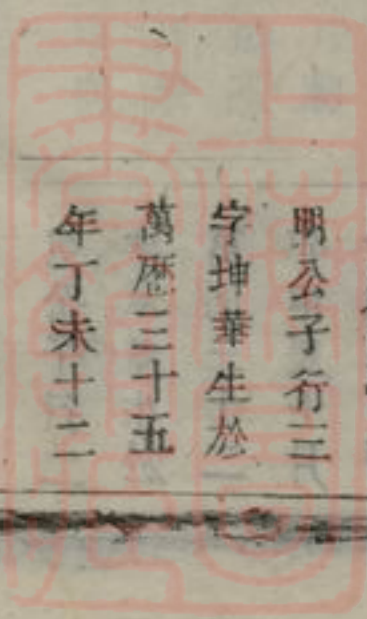 明公子行三
字坤華生於
萬曆三十五
年丁未十二